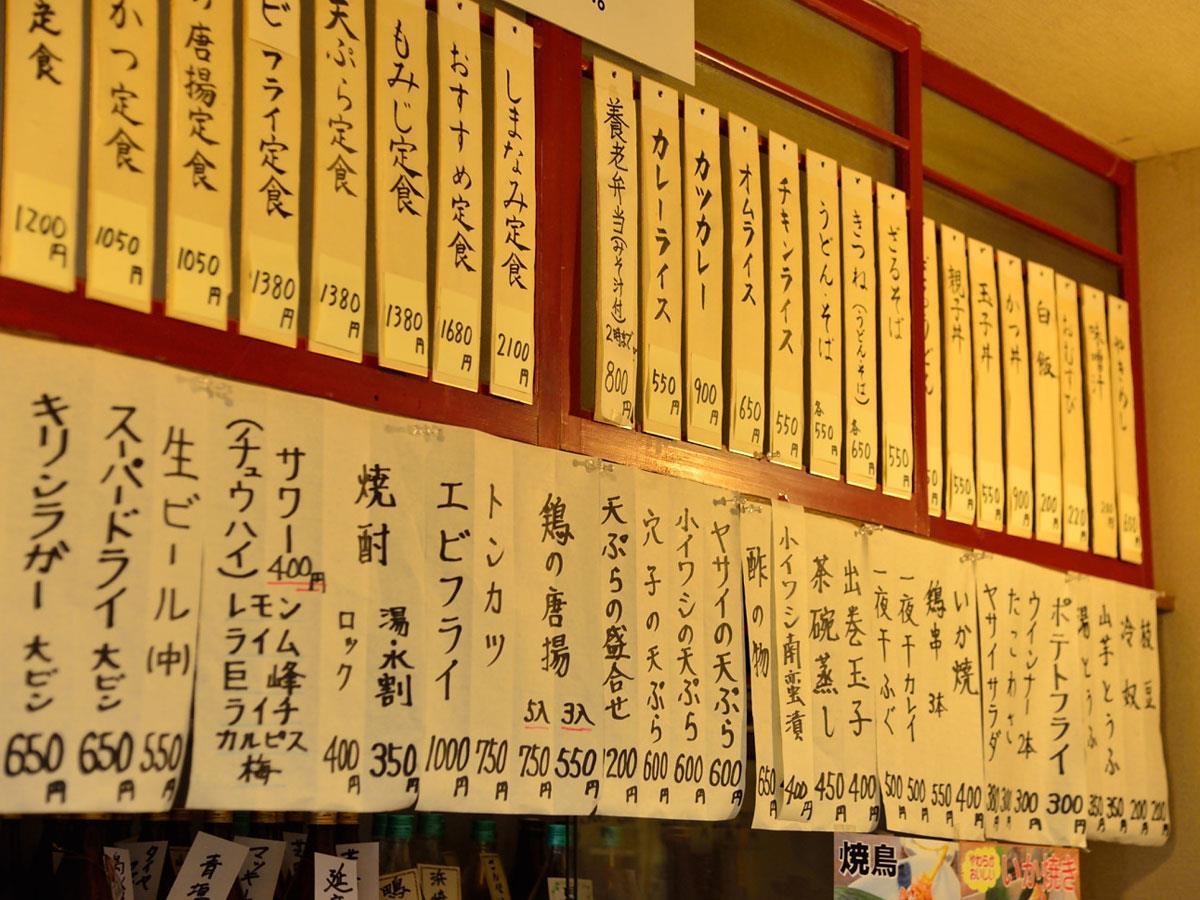 しまなみ定食 2100円
おすすめ定食 1680円
もみじ定食 1380円
天ぷら定食 1380円
ビフライ定食 1380円
唐揚定食 1050円
かつ定食 1050円
定食 1200円
やきめし 650円
味噌汁 200円
おむすび 220円
白飯 200円
かつ丼 900円
玉子丼 550円
親子丼 550円
ざるそば 550円
きつね(うどん・そば) 各650円
うどん・そば 各550円
チキンライス 550円
オムライス 650円
カツカレー 900円
カレーライス 550円
養老弁当(みそ汁付) 2時まで 800円
枝豆 200円
冷奴 200円
山芋とうふ 350円
湯とうふ 350円
ポテトフライ 300円
ウインナー 2本 300円
たこわさ
ヤサイサラダ
いか焼 400円
鶏串 3本 550円
一夜干カレイ 500円
一夜干ふぐ 500円
出巻玉子 400円
茶碗蒸し 450円
小イワシ南蛮漬 400円
酢の物 650円
ヤサイの天ぷら 600円
小イワシの天ぷら 600円
穴子の天ぷら 600円
天ぷらの盛合せ 1200円
鶏の唐揚 3入 550円 5入 750円
トンカツ 750円
エビフライ 1000円
焼酎
湯・水割 350円
ロック 400円
サワー 400円
(チュウハイ)
レモン
ライム
巨峰
ライチ
カルピス
梅
生ビール(中) 550円
スーパードライ 大ビン 650円
キリンラガー 大ビン 650円
焼鳥
やわらか おいしい いか焼き